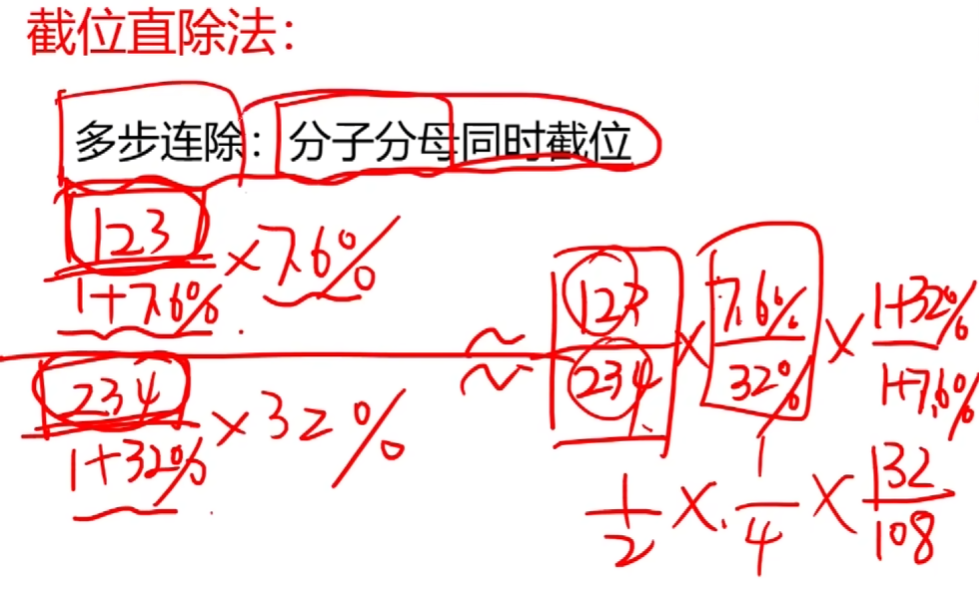 截位直除法：
多步连除：分子分母同时截位
123/1+7.6% ×7.6%
234/1+32% ×32%
≈ 123/234 × 7.6%/32% × 1+32%/1+7.6%
1/2 × 1/4 × 132/108